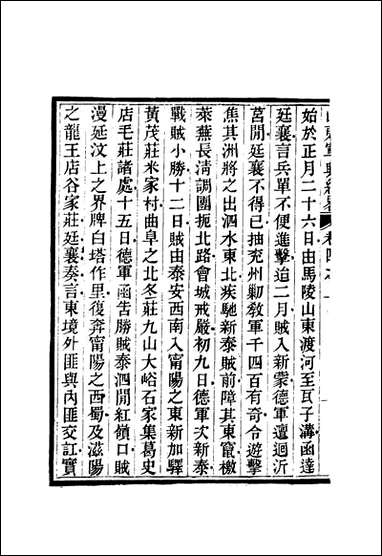 山東軍興紀畧 卷四之
始於正月二十六日由馬陵山東渡河至瓦子溝函達
廷襄言兵單不便進擊迨二月賊入新蒙德軍邅迴沂
莒閒廷襄不得已抽兗州勦敎軍千四百有奇令遊擊
焦其洲將之出泗水東北疾馳新泰賊前障其東竄檄
萊蕪長淸調團扼北路會城戒嚴初九日德軍次新泰
戰賊小勝十二日賊由泰安西南入甯陽之東新加驛
黃茂莊米家村曲阜之北冬莊九山大峪石家集葛史
店毛莊諸處十五日德軍函吿勝賊泰泗閒紅嶺口賊
漫延汶上之界牌白塔作里復奔甯陽之西蜀及滋陽
之龍王店谷家莊廷襄奏言東境外匪與內匪交訌實